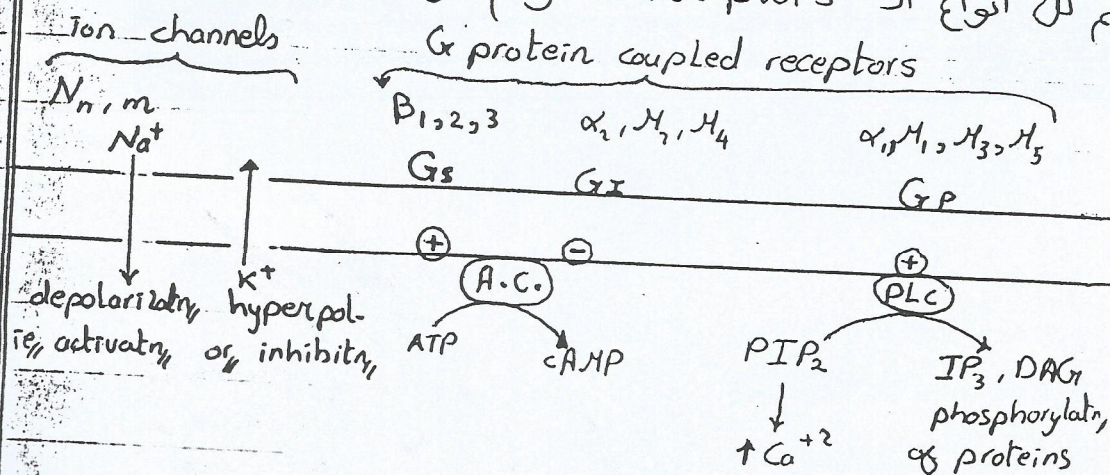 كل أنواع ال receptors
Ion channels
G protein coupled receptors
Nn, m
Na⁺
B1,2,3
α2, M2, M4
α1, M1, M3, M5
Gs
GI
GP
+
−
+
A.C.
PLC
K⁺
depolarizatn,,
hyperpol-
ie,, activatn,,
or,, inhibitn,,
ATP
cAMP
PIP2
IP3, DAG
phosphorylatn,,
of proteins
↑ Ca⁺²